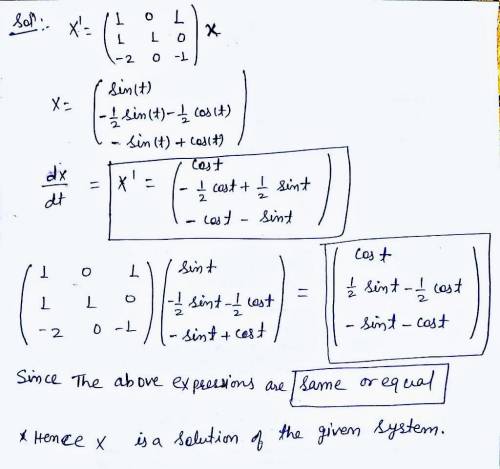 Solⁿ:- X' = ( 1 0 1
1 1 0
-2 0 -1 ) X
X = ( sin(t)
-1/2 sin(t) - 1/2 cos(t)
- sin(t) + cos(t) )
dx/dt = X' = ( cost
- 1/2 cost + 1/2 sint
- cost - sint )
( 1 0 1
1 1 0
-2 0 -1 ) ( sint
-1/2 sint - 1/2 cost
- sint + cost ) = ( cost
1/2 sint - 1/2 cost
- sint - cost )
Since The above expressions are same or equal
x Hence X is a solution of the given system.